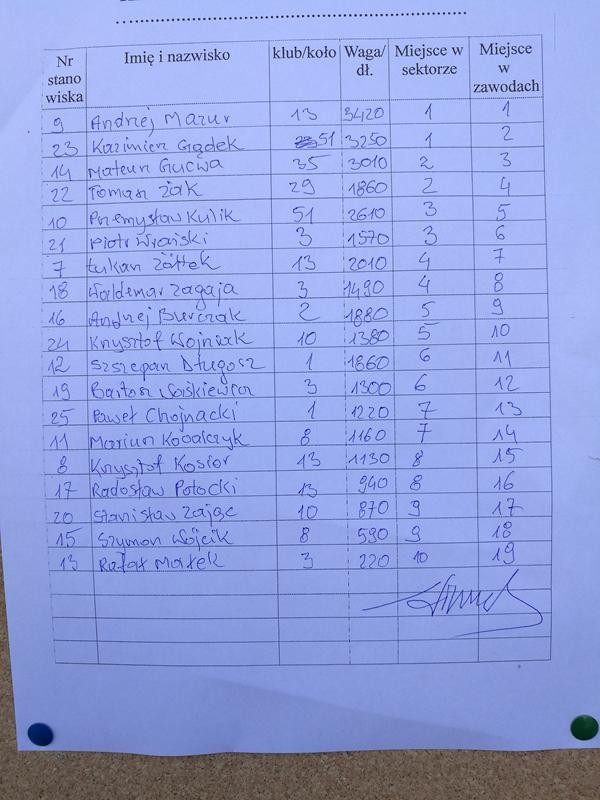 Nr stano wiska | Imię i nazwisko | klub/koło | Waga/ dł. | Miejsce w sektorze | Miejsce w zawodach
9 Andrzej Mazur 13 3420 1 1
23 Kazimierz Gądek 51 3250 1 2
14 Mateusz Gucwa 35 3010 2 3
22 Tomasz Żak 29 1860 2 4
10 Przemysław Kulik 51 2610 3 5
21 Piotr Wraiski 3 1570 3 6
7 Łukasz Żółtek 13 2010 4 7
18 Waldemar Zagaja 3 1490 4 8
16 Andrzej Burczak 2 1880 5 9
24 Krzysztof Wojniak 10 1380 5 10
12 Szczepan Długosz 1 1860 6 11
19 Bartosz Waśkiewicz 3 1300 6 12
25 Paweł Chojnacki 1 1220 7 13
11 Mariusz Kowalczyk 8 1160 7 14
8 Krzysztof Kosior 13 1130 8 15
17 Radosław Potocki 13 940 8 16
20 Stanisław Zając 10 870 9 17
15 Szymon Wójcik 8 590 9 18
13 Rafał Małek 3 220 10 19